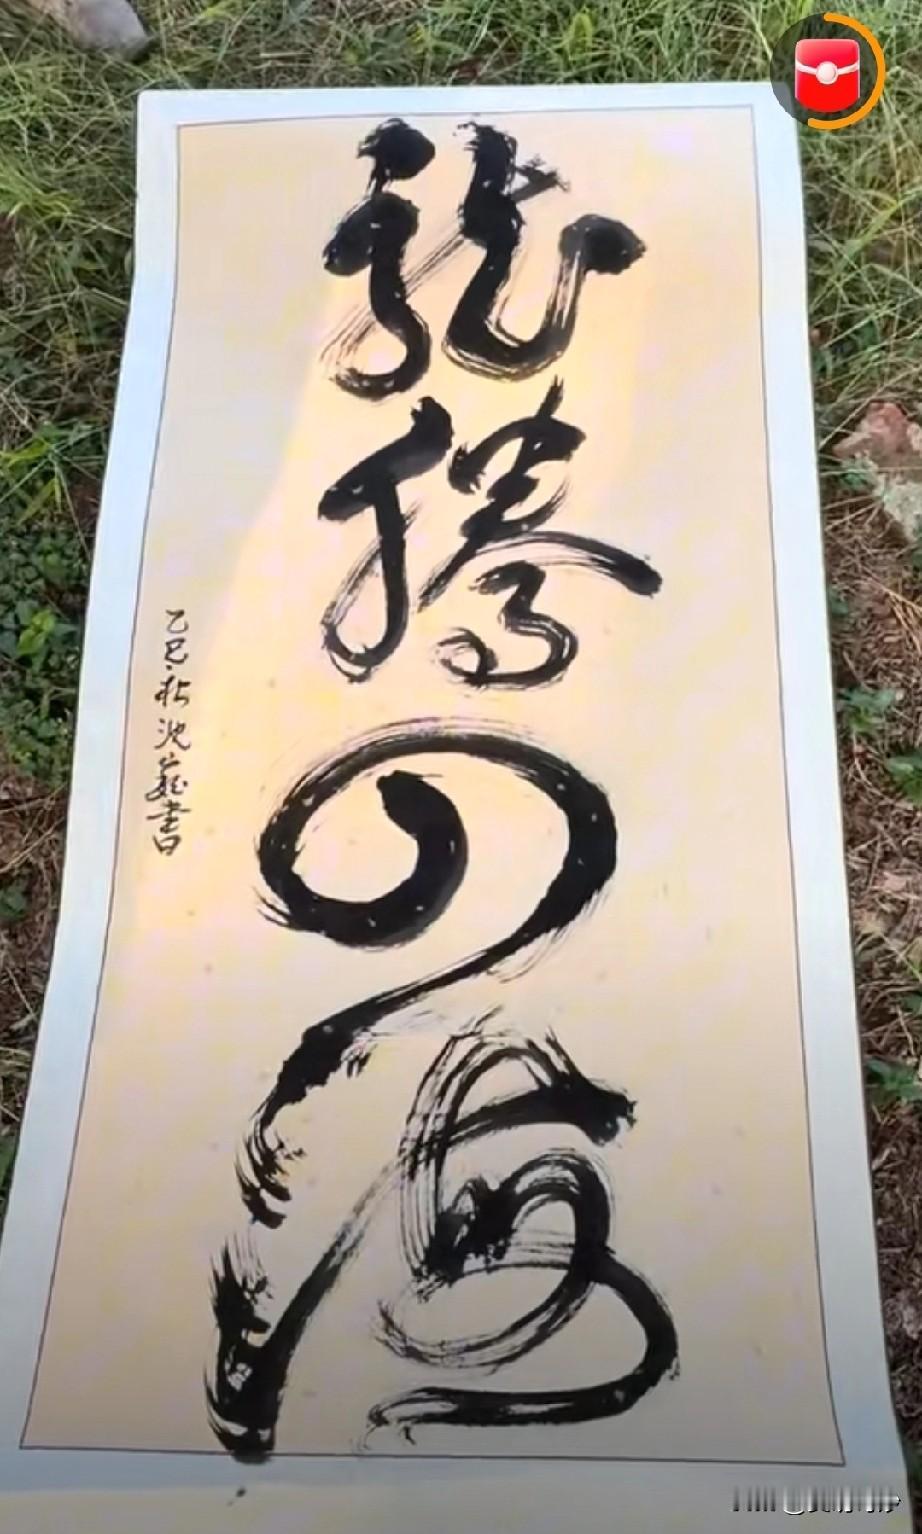 龙腾四海
乙巳·秋沈巍书